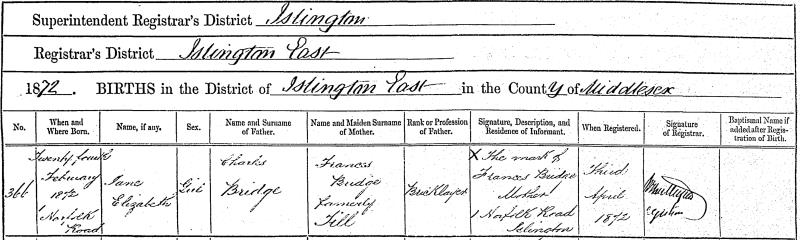 Superintendent Registrar's District Islington
Registrar's District Islington East
1872. BIRTHS in the District of Islington East in the County of Middlesex
No.
When and
Where Born.
Name, if any.
Sex.
Name and Surname
of Father.
Name and Maiden Surname
of Mother.
Rank or Profession
of Father.
Signature, Description, and
Residence of Informant.
When Registered.
Signature
of Registrar.
Baptismal Name if
added after Regis-
tration of Birth.
366
Twenty fourth
February
1872
1 Norfolk
Road
Jane
Elizabeth
Girl
Charles
Bridge
Frances
Bridge
formerly
Till
Bricklayer
X The mark of
Frances Bridge
Mother
1 Norfolk Road
Islington
Third
April
1872